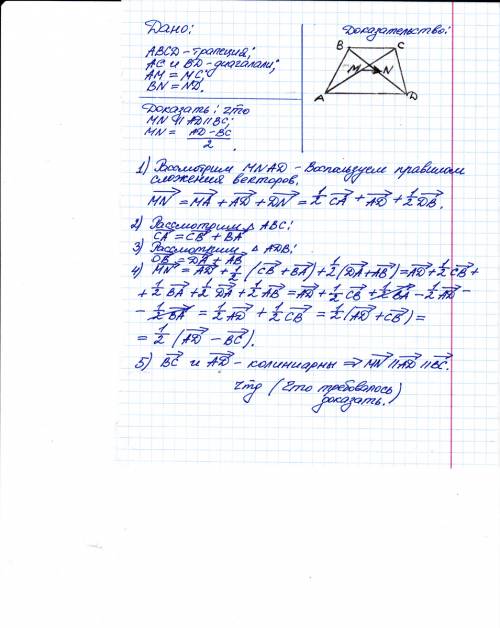 Дано:
ABCD - трапеция;
AC и BD - диагонали;
AM = MC;
BN = ND.
Доказать: что
MN || AD || BC;
MN = AD - BC / 2.
Доказательство:
B C
M N
A D
1) Рассмотрим MNAD - Воспользуем правилом
сложения векторов,
MN = MA + AD + DN = 1/2 CA + AD + 1/2 DB.
2) Рассмотрим △ ABC:
CA = CB + BA
3) Рассмотрим △ ADB:
DB = DA + AB
4) MN = AD + 1/2 (CB + BA) + 1/2 (DA + AB) = AD + 1/2 CB +
+ 1/2 BA + 1/2 DA + 1/2 AB = AD + 1/2 CB + 1/2 BA - 1/2 AD -
- 1/2 BA = 1/2 AD + 1/2 CB = 1/2 (AD + CB) =
= 1/2 (AD - BC).
5) BC и AD - колиниарны ⇒ MN || AD || BC.
Чтд (Что требовалось
доказать.)